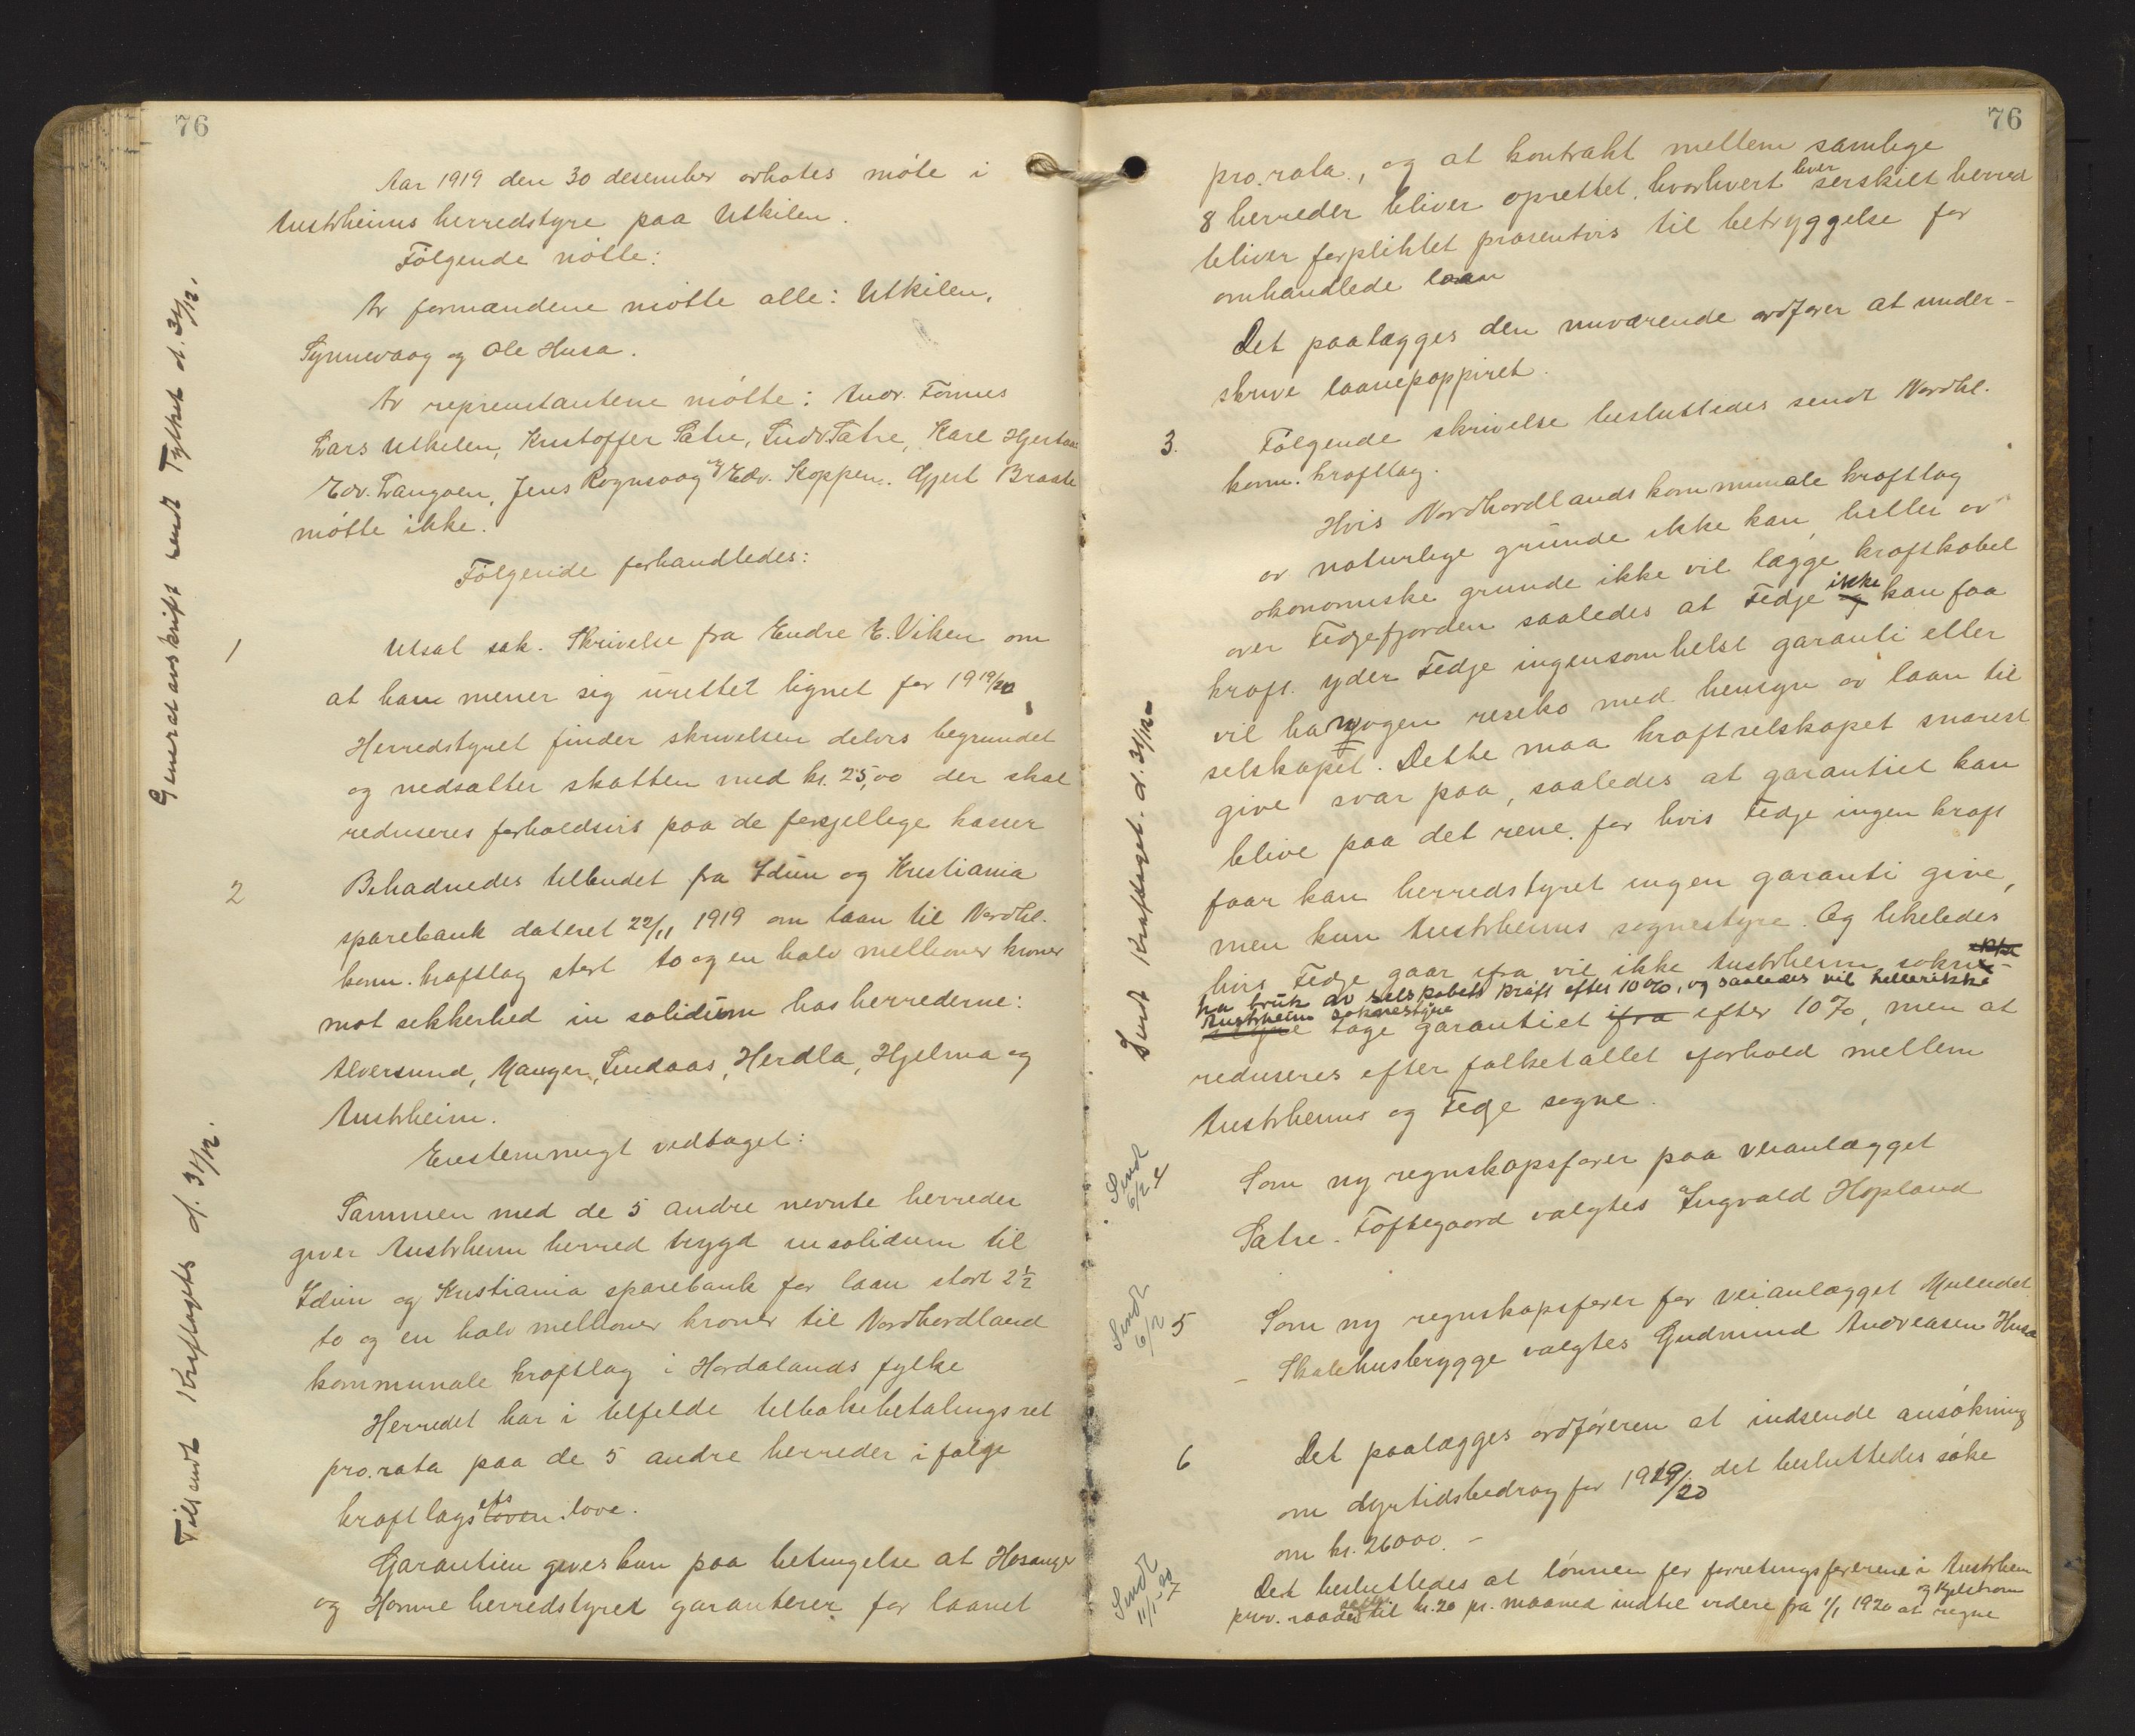 76
Aar 1919 den 30 desember avhotes møte i
Austrheims herredstyre paa Utkilen.
Følgende møtte:
Av formændene møtte alle: Utkilen,
Synnevaag og Ole Husa.
Av representantene møtte: Andr. Fonnes
Lars Utkilen, Kristoffer Sætre, Ludv Sætre, Karl Hjertaas
Edv. Langøen, Jens Rognsvaag og Edv. Koppen. Gjert Braste
møtte ikke.
Følgende forhandledes:
1
Utsat sak. Skrivelse fra Endre E. Viken om
at han mener sig urettet lignet for 1919/20
Herredstyret finder skrivelsen delvis begrundet
og nedsætter skatten med kr. 25,00 der skal
reduseres forholdsvis paa de forsjellige kasser
2
Behadnedes tilbudet fra Idun og Kristiania
sparebank dateret 22/11 1919 om laan til Nordhl.
kom. kraftlag stort to og en halv millioner kroner
mot sikkerhed in solidum hos herrederne:
Alversund, Manger, Lindaas, Herdla, Hjelma og
Austrheim.
Enstemmigt vedtaget:
Sammen med de 5 andre nevnte herreder
giver Austrheim herred trygd in solidum til
Idun og Kristiania sparebank for laan stort 2½
to og en halv millioner kroner til Nordhordland
kommunale kraftlag i Hordalands fylke
Herredet har i tilfelde tilbakebetalingsret
pro.rata paa de 5 andre herreder i følge
kraftlagsloven ets love.
Garantien gives kun paa betingelse at Hosanger
og Hamre herredstyret garanterer for laanet
Generalavskrift sendt Fylket d. 31/12.
Tilsendt Kraftlaget d. 31/12.
76
pro.rata., og at kontrakt mellem samlige
8 herreder bliver oprettet, hvorhvert hver serskilt herred
bliver forpliktet prosentvis til betryggelse for
omhandlede laan
Det paalægges den nuværende ordfører at under-
skrive laanepappiret.
3.
Følgende skrivelse besluttedes sendt Nordhl.
kom. kraftlag.
Hvis Nordhordlands kommunale kraftlag
av naturlige grunde ikke kan, heller av
økonomiske grunde ikke vil lægge kraftkabel
over Fedjefjorden saaledes at Fedje og ikke kan faa
kraft. yder Fedje ingensomhelst garanti eller
vil ha nogen reseko med hensyn av laan til
selskapet. Dette maa kraftselskapet snarest
give svar paa, saaledes at garantiet kan
blive paa det rene. for hvis Fedje ingen kraft
faar kan herredstyret ingen garanti give,
men kun Austrheims sognestyre. Og likeledes
hvis Fedje gaar ifra vil ikke Austrheim sokne-
ha bruk av selskabets kraft efter 10%, og saaledes vil heller ikke
Austrheim soknestyre
tage garantiet ifra efter 10%, men at
reduseres efter folketallet iforhold mellem
Austrheims og Fedje sogne.
4
Som ny regnskapsfører paa veianlægget
Sætre. Toftegaard valgtes Ingvald Hopland
5
Som ny regnskapsfører for veianlægget Muledet
- Skalehusbrygge valgtes Gudmund Andreasen Husa
6
Det paalægges ordføreren at indsende ansøkning
om dyrtidsbedrag for 1919/20 det besluttedes søke
om kr. 26000. -
7
Det besluttedes at lønnen for forretingsførerene i Austrheim
og Kjelstraum
prov. raader sættes til kr. 20 pr. maaned indtil videre fra 1/1 1920 at regne
Sendt Kraftlaget. d. 31/12
Sendt 6/2
Sendt 6/2
Sendt 11/1-20